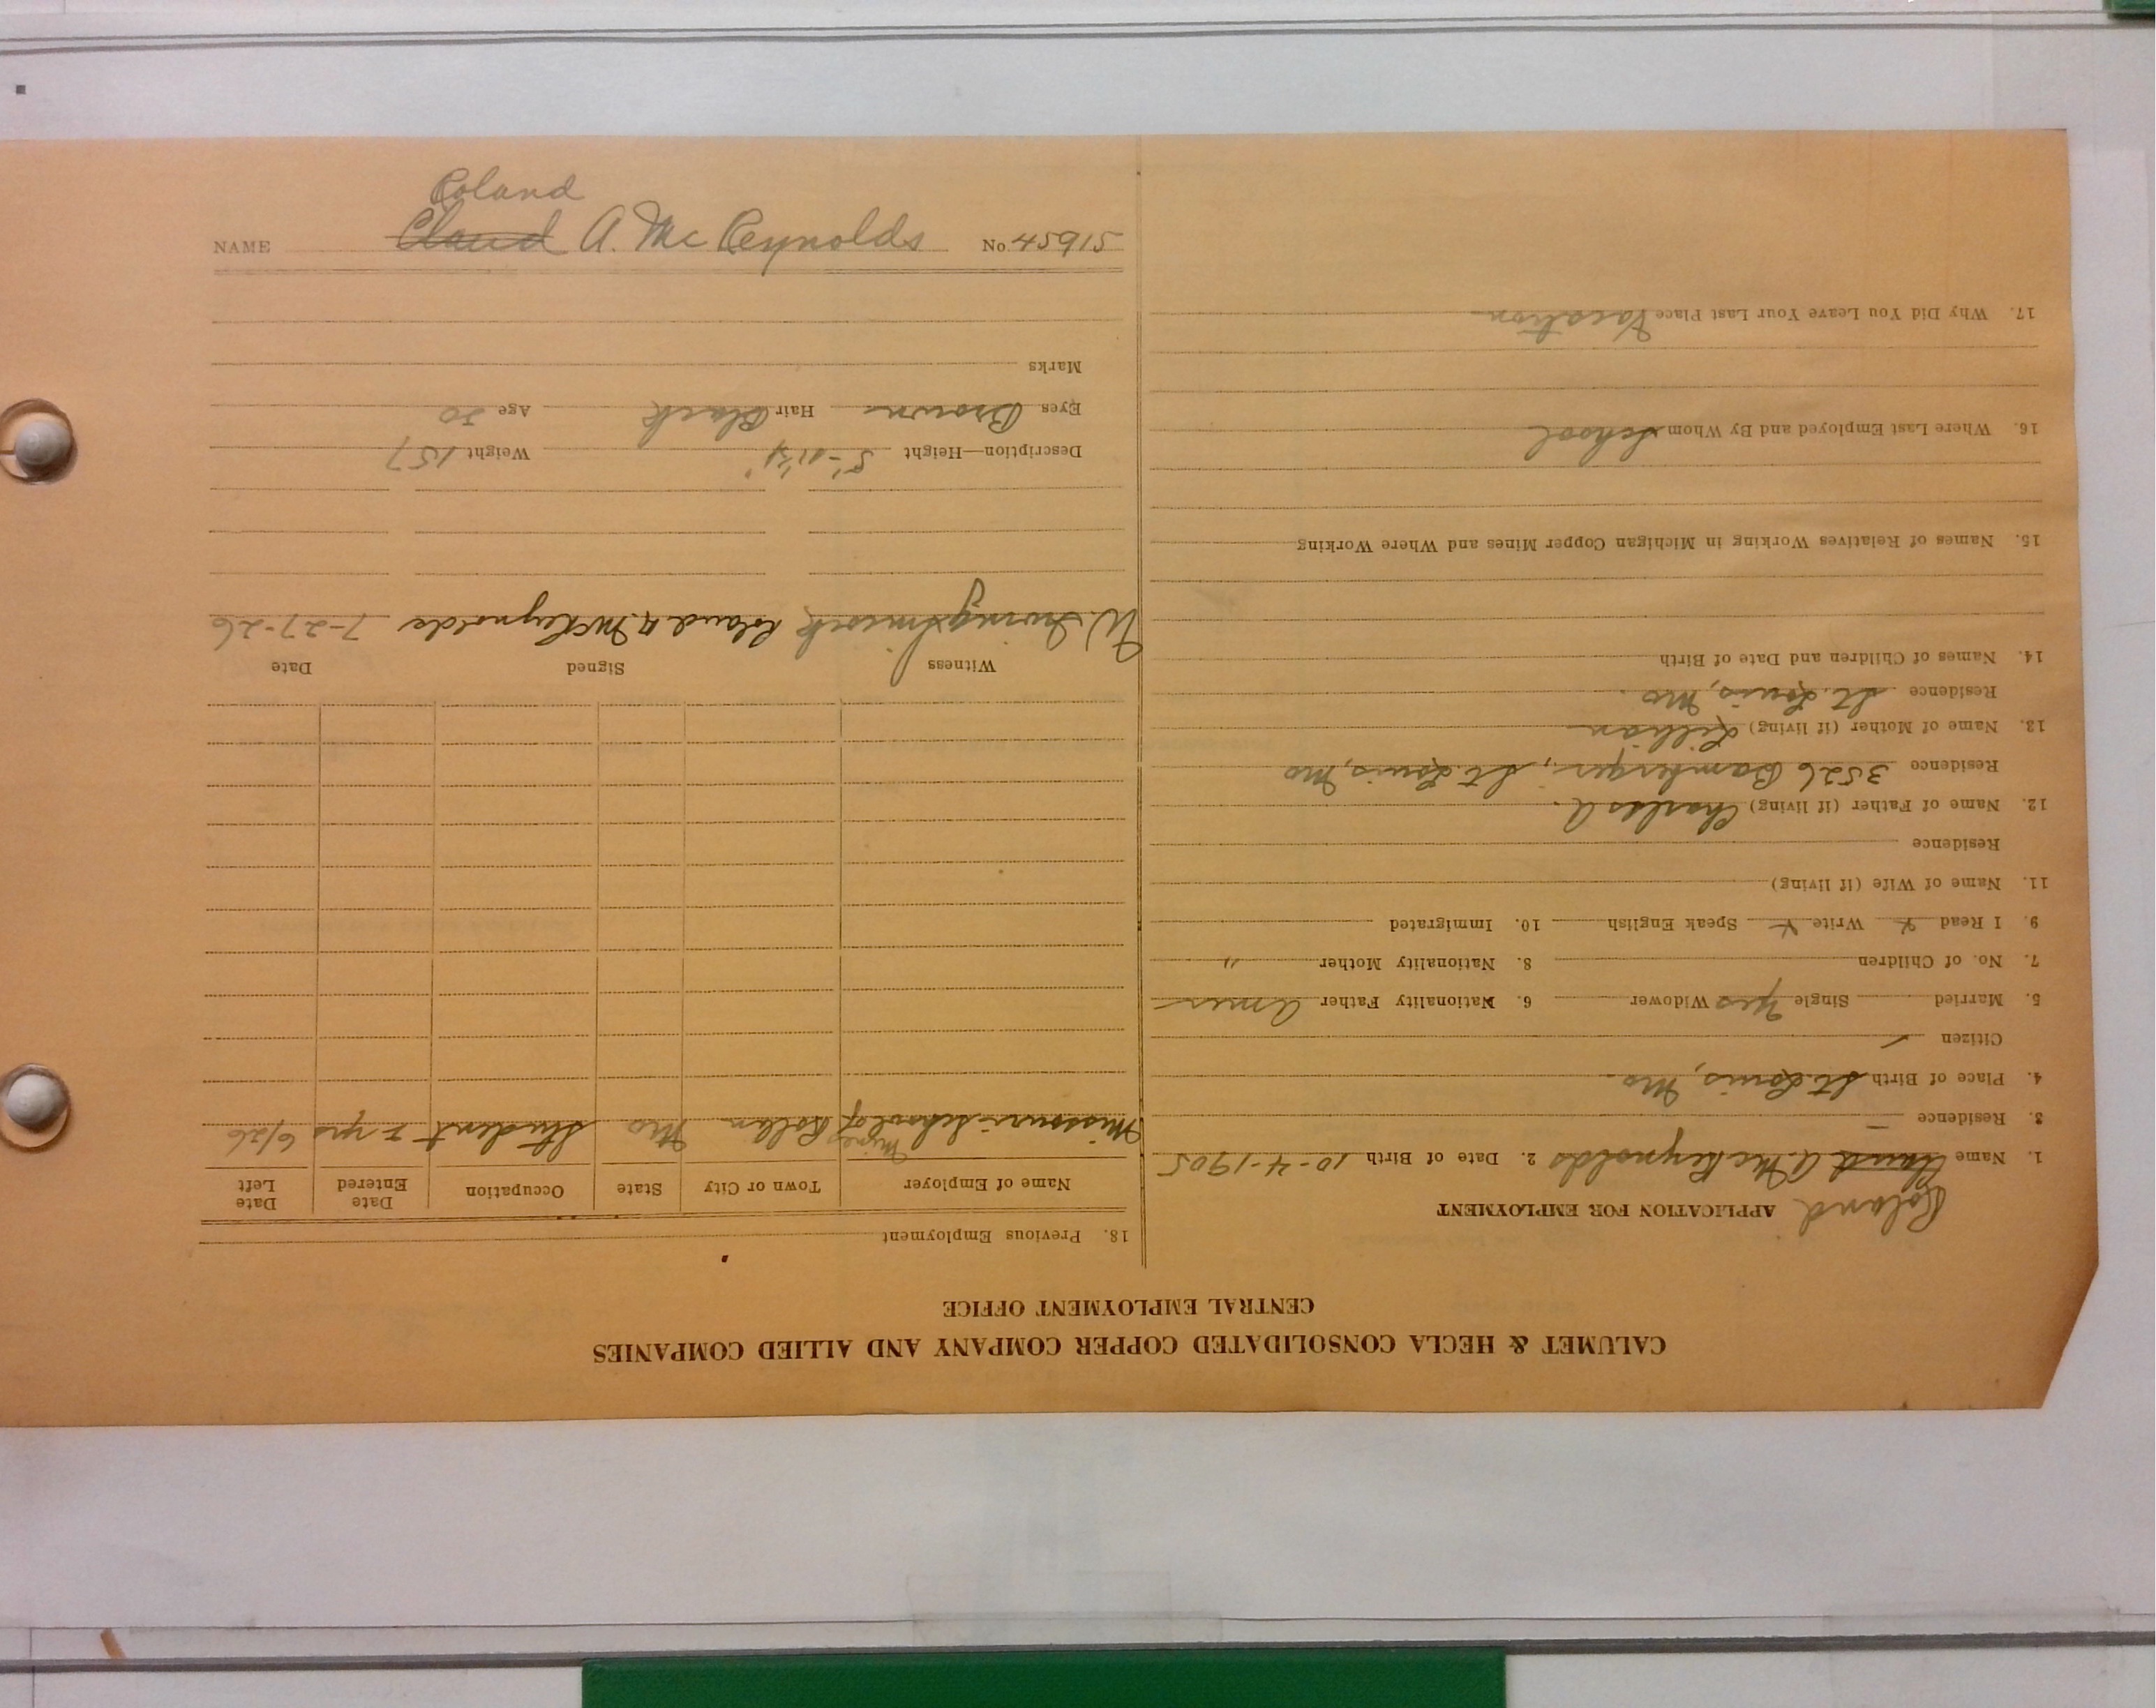 CALUMET & HECLA CONSOLIDATED COPPER COMPANY AND ALLIED COMPANIES
CENTRAL EMPLOYMENT OFFICE
APPLICATION FOR EMPLOYMENT
Roland
1. Name Claud A. McReynolds 2. Date of Birth 10-4-1905
3. Residence
4. Place of Birth St. Louis, Mo.
Citizen ✓
5. Married Single Yes Widower 6. Nationality Father Amer
7. No. of Children 8. Nationality Mother "
9. I Read x Write x Speak English 10. Immigrated
11. Name of Wife (if living)
Residence
12. Name of Father (if living) Charles A.
Residence 3526 Bamberger, St. Louis, Mo
13. Name of Mother (if living) Lillian
Residence St. Louis, Mo.
14. Names of Children and Date of Birth
15. Names of Relatives Working in Michigan Copper Mines and Where Working
16. Where Last Employed and By Whom School
17. Why Did You Leave Your Last Place Vacation
18. Previous Employment
Name of Employer Town or City State Occupation Date Entered Date Left
Missouri School of Mines Rolla Mo Student 2 yrs 6/26
Witness Signed Date
W. Irving Roland A. McReynolds 7-27-26
Description—Height 5'-11½" Weight 157
Eyes Brown Hair Black Age 20
Marks
Roland
NAME Claud A. McReynolds No 45915